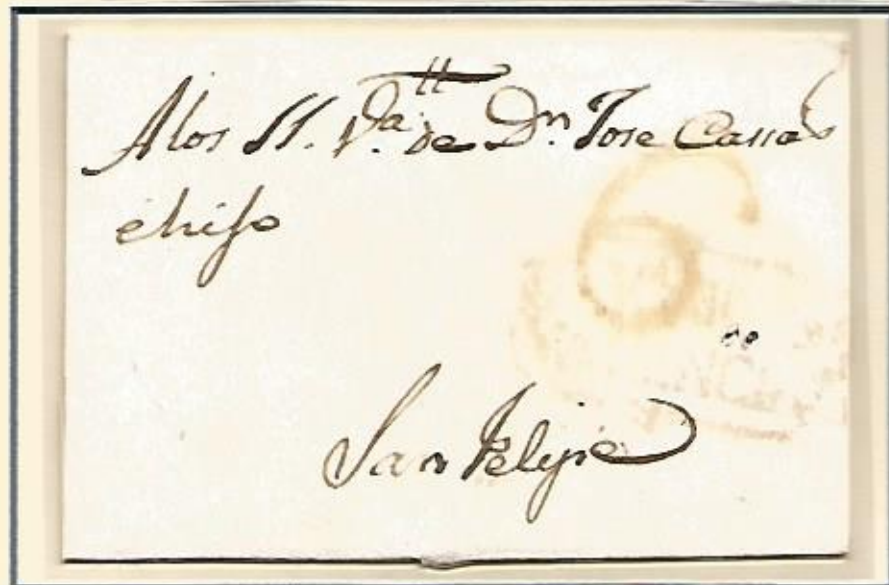 A los SS. V.a de Dn. Jose Casas
é hijo
6
San Felipe